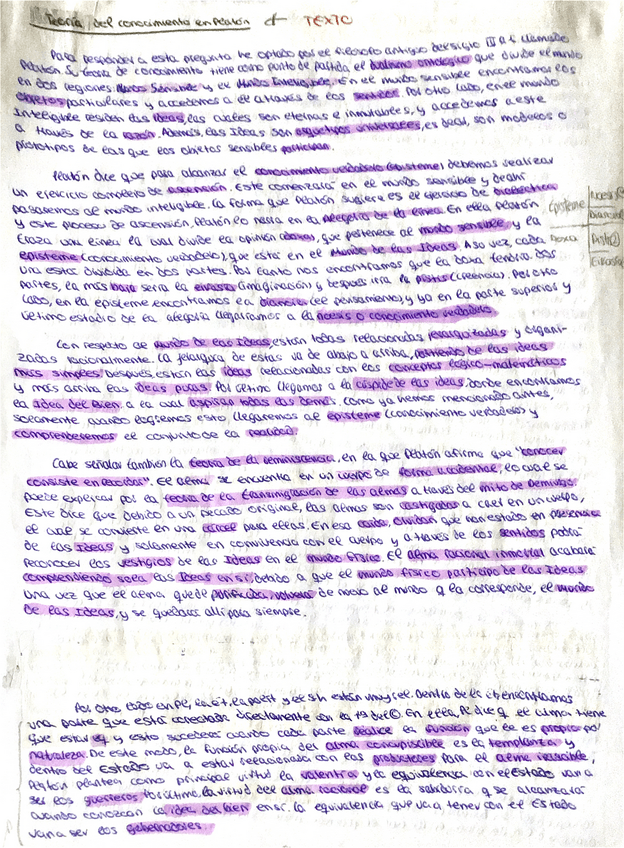 Teoría del conocimiento en Platón TEXTO
Para responder a esta pregunta he optado por el filósofo antiguo del siglo a.C. llamado
Platón. Su teoría de conocimiento tiene como punto de partida el dualismo ontológico que divide el mundo
en dos regiones: Mundo Sensible y el Mundo Inteligible. En el mundo sensible encontramos los
objetos particulares y accedemos a él a través de los sentidos. Por otro lado, en el mundo
Inteligible residen las ideas, las cuales son eternas e inmutables, y accedemos a este
a través de la razón. Además, las Ideas son arquetipos universales, es decir, son modelos o
prototipos de las que los objetos sensibles participan.
Platón dice que para alcanzar el conocimiento verdadero (episteme) debemos realizar
un ejercicio complejo de ascensión. Este comenzará en el mundo sensible y de ahí
pasaremos al mundo inteligible. La forma que Platón sugiere es el ejercicio de dialéctica
y este proceso de ascensión, Platón lo narra en la alegoría de la línea. En ella Platón
traza una línea la cual divide la opinión (doxa), que pertenece al mundo sensible y la
episteme (conocimiento verdadero), que está en el Mundo de las Ideas. A su vez, cada
una estará dividida en dos partes. Por tanto nos encontramos que la doxa tendría dos
partes, la más baja sería la eikasia (imaginación) y después irra la pistis (creencia). Por otro
lado, en la episteme encontramos la dianoia (el pensamiento) y ya en la parte superior y
último estadio de la alegoría llegaríamos a la noesis o conocimiento verdadero
Episteme
Noesis
Dianoia
Doxa
Pistis
Eikasia
Con respecto al Mundo de las Ideas, están todas relacionadas jerarquizadas y organi-
zadas racionalmente. La jerarquía de estas va de abajo a arriba, partiendo de las ideas
más simples, después están las ideas relacionadas con los conceptos lógico-matemáticos
y más arriba las ideas puras. Por último llegamos a la cúspide de las ideas, donde encontramos
la Idea del Bien, a la cual aspiran todas las demás. Como ya hemos mencionado antes,
solamente cuando logremos esto, llegaremos al episteme (conocimiento verdadero) y
comprenderemos el conjunto de la realidad.
Cabe señalar también la teoría de la reminiscencia, en la que Platón afirma que "conocer
consiste en recordar". El alma se encuentra en un cuerpo de forma accidental, lo cual se
puede explicar por la teoría de la transmigración de las almas a través del mito de Demiurgo.
Este dice que debido a un pecado original, las almas son castigadas a caer en un cuerpo,
el cual se convierte en una cárcel para ellas. En esa caída, olvidan que han estado en presencia
de las Ideas y solamente en convivencia con el cuerpo y a través de los sentidos podrá
reconocer los vestigios de las Ideas en el mundo físico. El alma racional inmortal acabará
comprendiendo sola las Ideas en sí, debido a que el mundo físico participa de las Ideas
Una vez que el alma quede purificada, volverá de nuevo al mundo q la corresponde, el mundo
de las Ideas, y se quedará allí para siempre.
Por otro lado en Pl, la ét, la polít y el están muy rel. Dentro de la ét encontramos
una parte que está conectada directamente con la En ella, Pl dice q el alma tiene
que estar eq y esto sucederá cuando cada parte realice la función que le es propia por
naturaleza. De este modo, la función propia del alma concupiscible es la templanza y
dentro del Estado va a estar relacionada con los productores. Para el alma irascible,
Platón plantea como principal virtud la valentía y la equivalencia con el Estado van a
ser los guerreros. Por último, la virtud del alma racional es la sabiduría q se alcanzará
cuando conozcan la idea del Bien en sí. La equivalencia que va a tener con el Estado
van a ser los gobernadores.